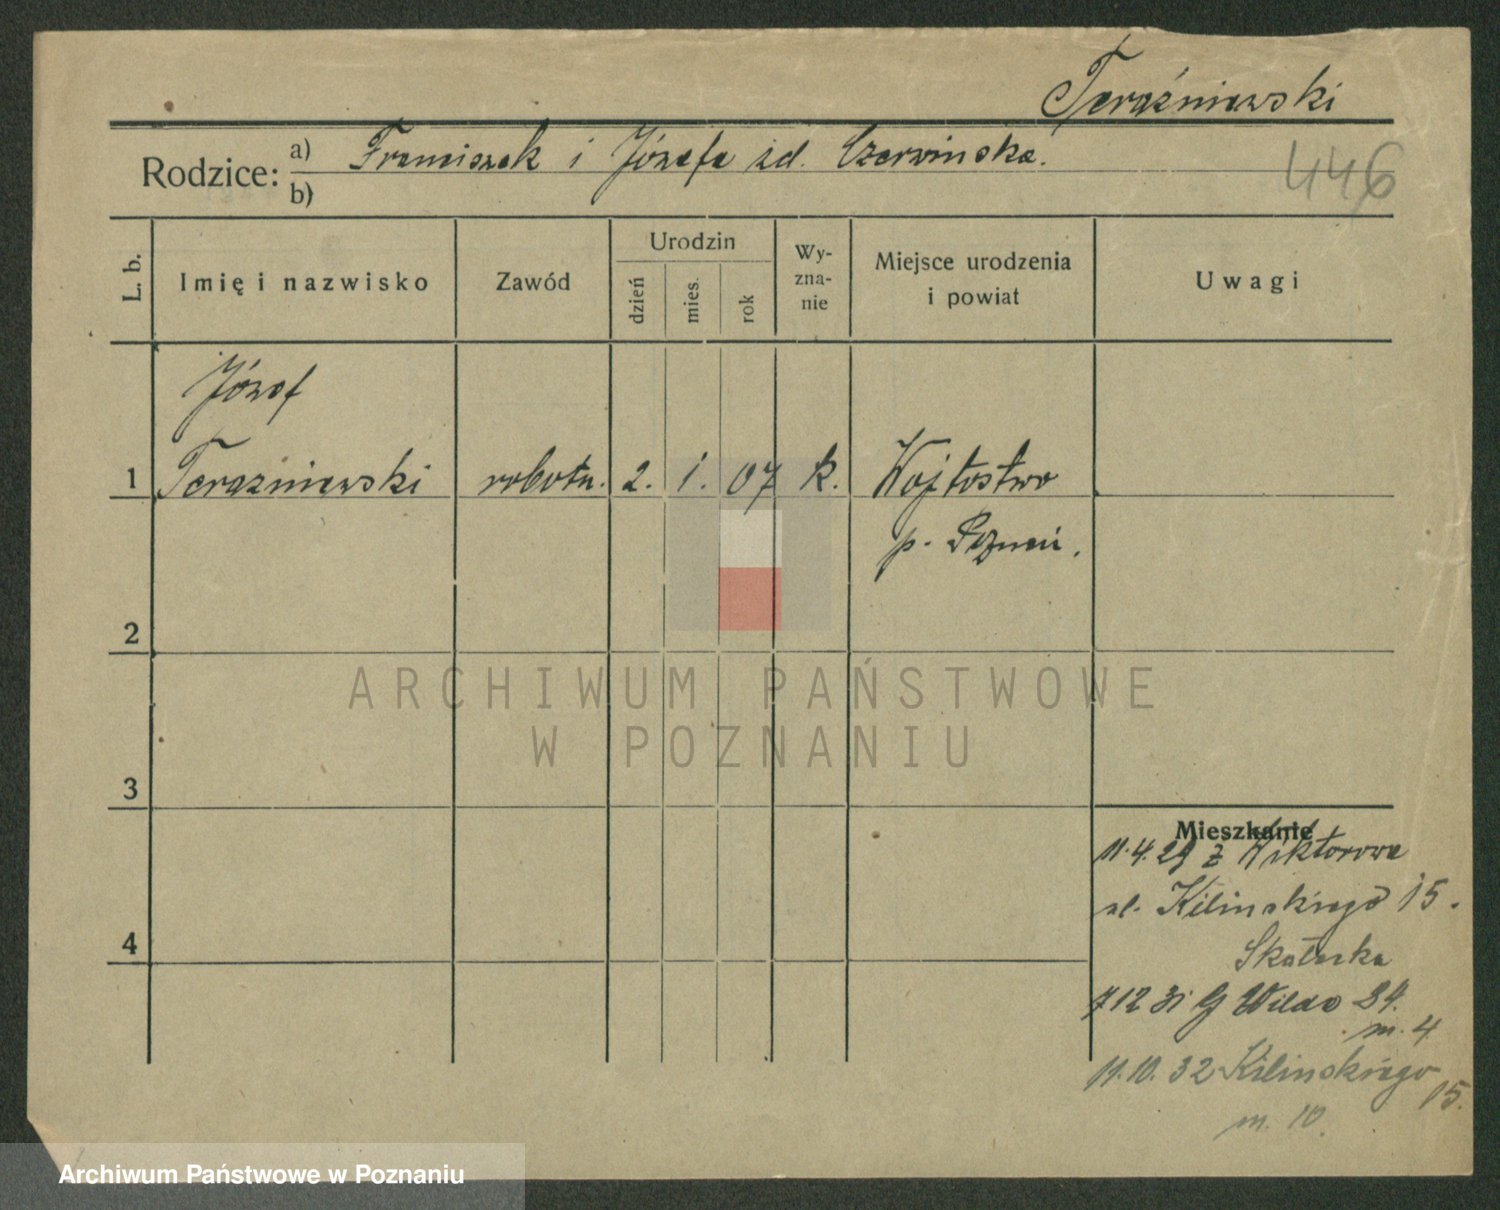 Teraźniewski
Rodzice: a) Franciszek i Józefa zd. Czerwińska.
b)
446
L. b.
Imię i nazwisko
Zawód
Urodzin
dzień
mies.
rok
Wy-
zna-
nie
Miejsce urodzenia
i powiat
Uwagi
Józef
1 Teraźniewski robotn. 2. 1. 07 k. Wojtostwo
p. Poznań.
2
3
4
Mieszkanie
11.4.29 z Wiktorowa
ul. Kilińskiego 15.
7 12 31 G Wilda 84.
m. 4
11.10.32 Kilińskiego
15.
m. 10.
ARCHIWUM PAŃSTWOWE
W POZNANIU
Archiwum Państwowe w Poznaniu